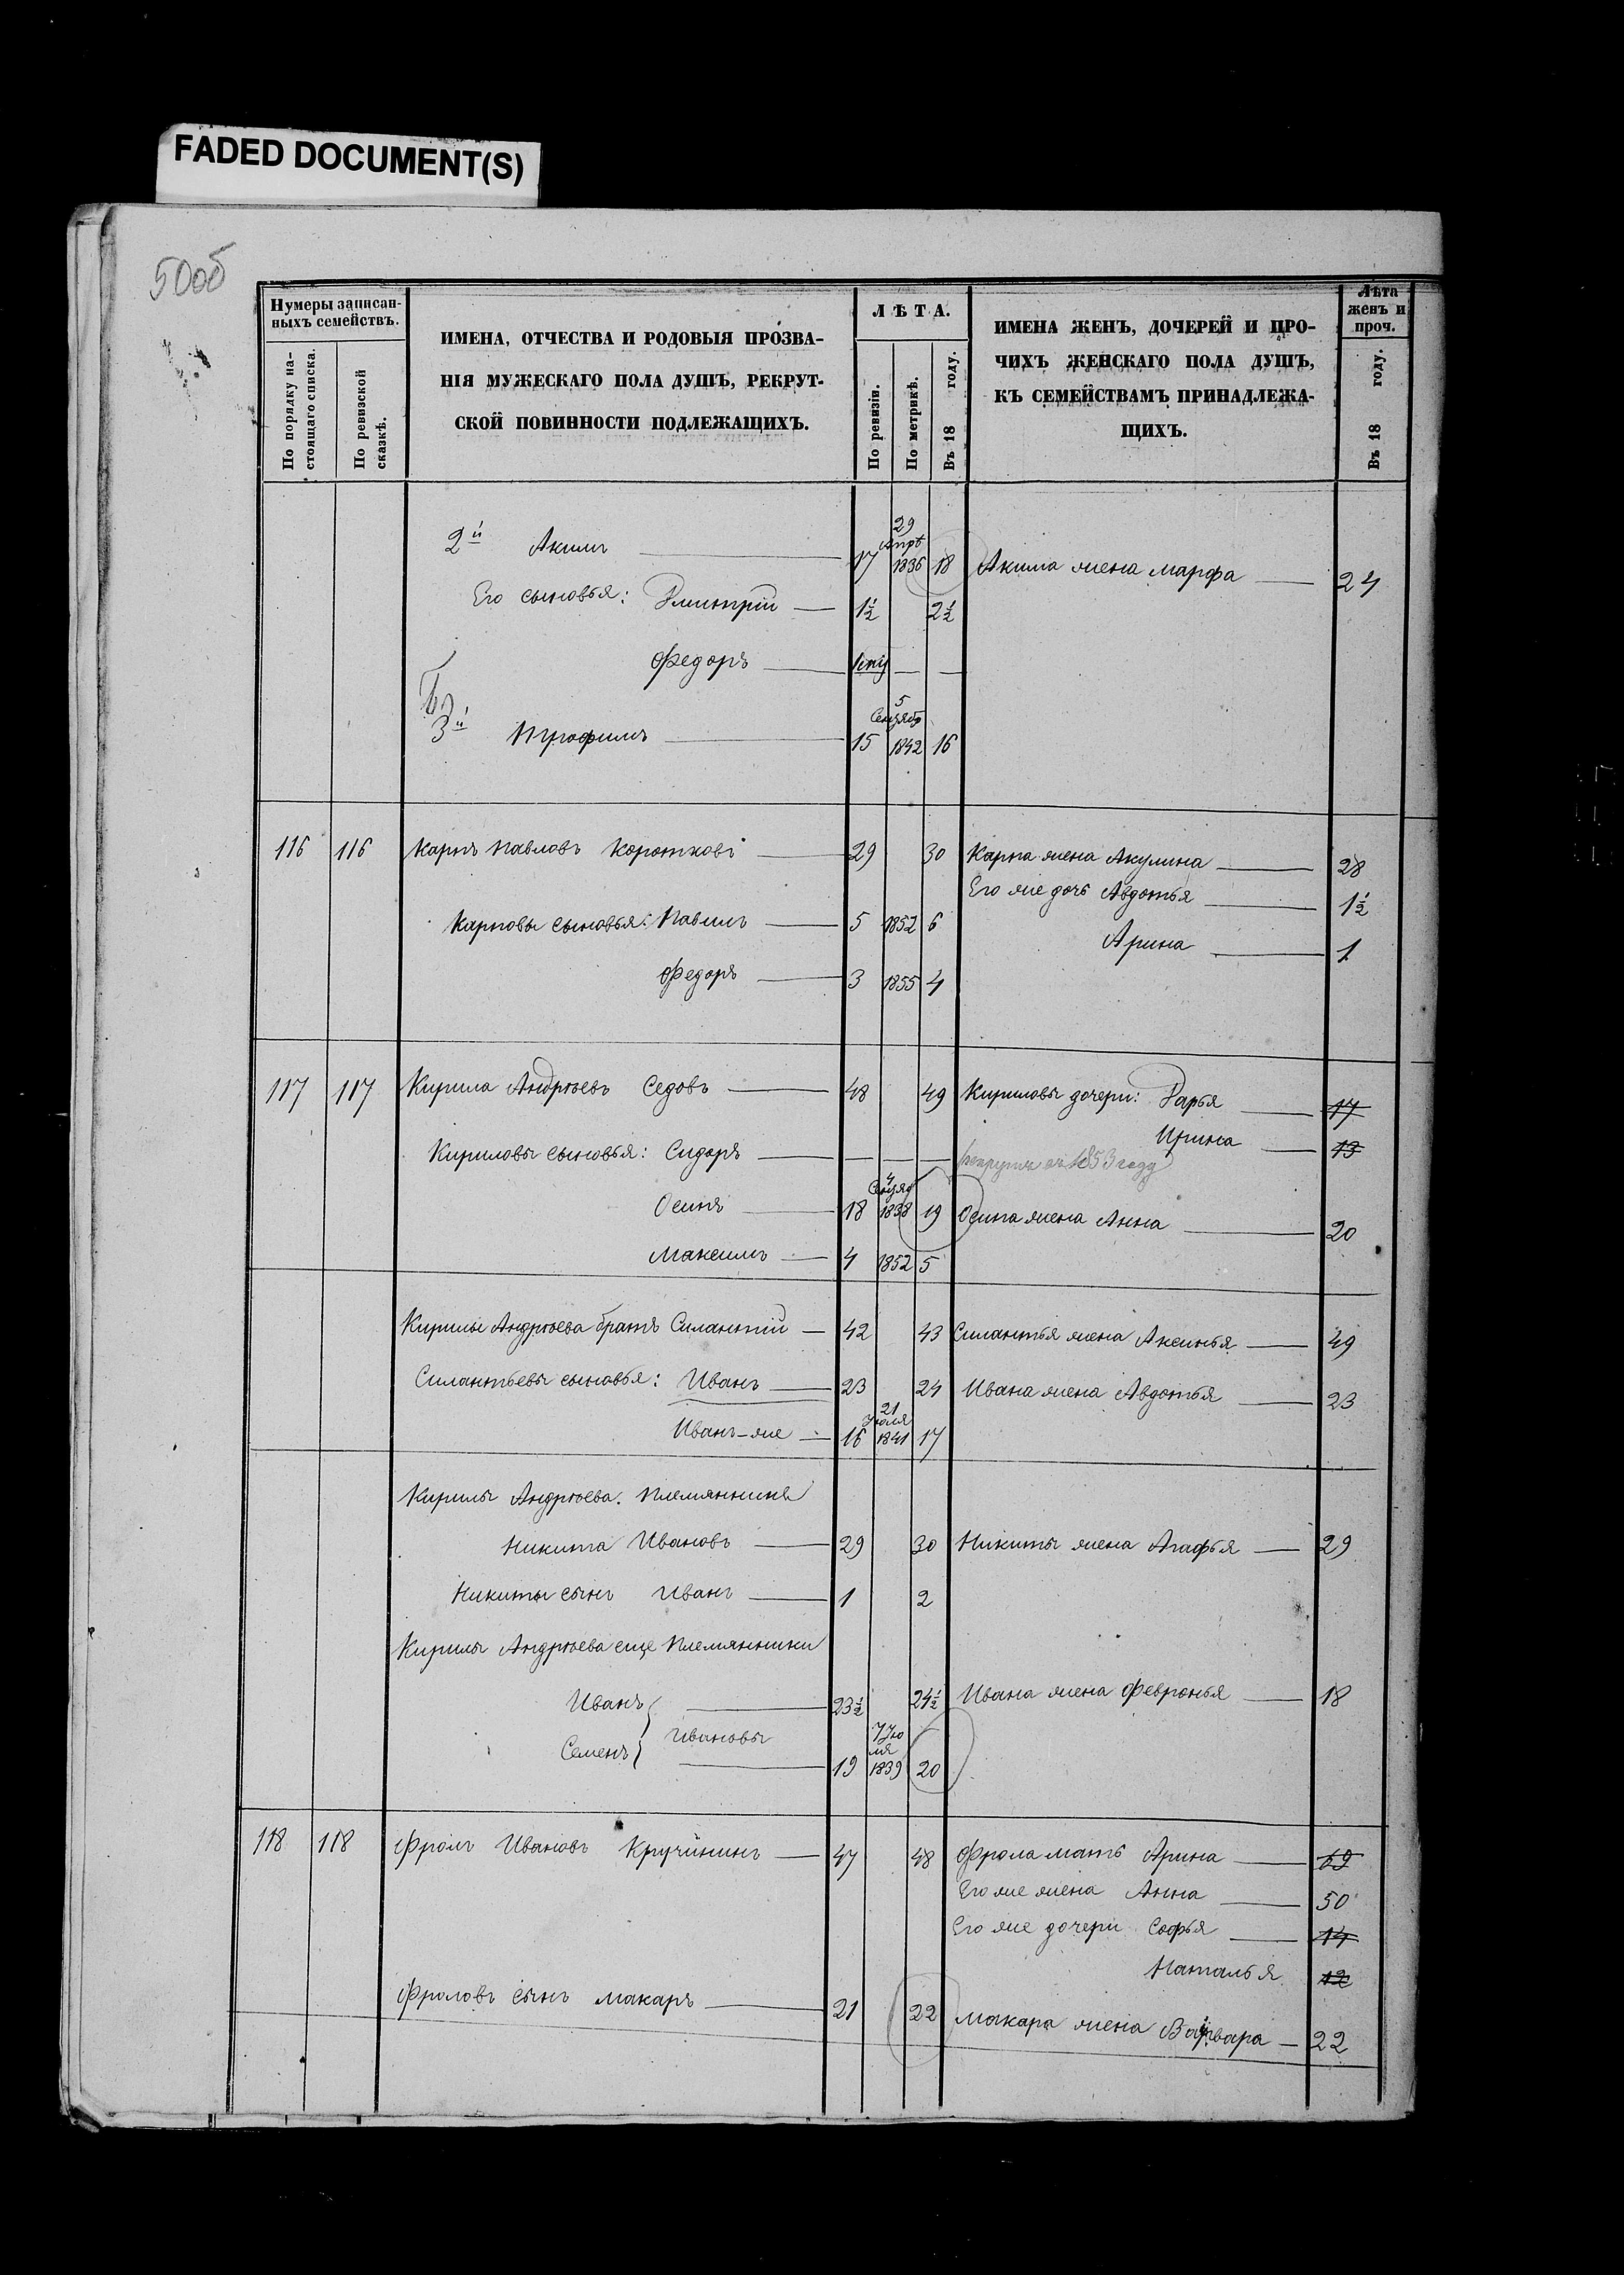 FADED DOCUMENT(S)
50об
Нумеры записан-
ныхъ семействъ.
По порядку на-
стоящаго списка.
По ревизской
сказкѣ.
ИМЕНА, ОТЧЕСТВА И РОДОВЫЯ ПРОЗВА-
НІЯ МУЖЕСКАГО ПОЛА ДУШЪ, РЕКРУТ-
СКОЙ ПОВИННОСТИ ПОДЛЕЖАЩИХЪ.
ЛѢТА.
По ревизіи.
По метрикѣ.
Въ 18 году.
ИМЕНА ЖЕНЪ, ДОЧЕРЕЙ И ПРО-
ЧИХЪ ЖЕНСКАГО ПОЛА ДУШЪ,
КЪ СЕМЕЙСТВАМЪ ПРИНАДЛЕЖА-
ЩИХЪ.
Лѣта
женъ и
проч.
Въ 18 году.
2й Акимъ — 17 29 Апрѣ 1836 18 Акима жена Марфа — 24
Его сыновья: Дмитрій — 1½ 2½
Федоръ — — —
3й Трофимъ — 15 5 Сентяб 1842 16
116 116 Карпъ Павловъ Коротковъ — 29 30 Карпа жена Акулина — 28
Его же дочь Авдотья — 1½
Карповы сыновья: Павелъ — 5 1852 6
Арина — 1
Федоръ — 3 1855 4
117 117 Кирила Андрѣевъ Седовъ — 48 49 Кириловы дочери: Дарья — 17
Ирина — 13
Кириловы сыновья: Сидоръ — — — — рекрутъ въ 1853 году
Осипъ — 18 4 Сентяб 1838 19 Осипа жена Анна — 20
Максимъ — 4 1852 5
Кирилы Андрѣева братъ Силантій — 42 43 Силантья жена Аксинья — 49
Силантьевы сыновья: Иванъ — 23 24 Ивана жена Авдотья — 23
Иванъ-же — 16 21 Июля 1841 17
Кирилы Андрѣева. Племянникъ
Никита Ивановъ — 29 30 Никиты жена Агафья — 29
Никиты сынъ Иванъ — 1 2
Кирилы Андрѣева еще Племянники
Иванъ — 23½ 24½ Ивана жена Февронья — 18
Ивановы
Семенъ — 19 1839 20
118 118 Фролъ Ивановъ Кручининъ — 47 48 Фрола мать Арина — 69
Его же жена Анна — 50
Его же дочери Софья — 14
Наталья 12
Фроловъ сынъ Макаръ — 21 22 Макара жена Варвара — 22